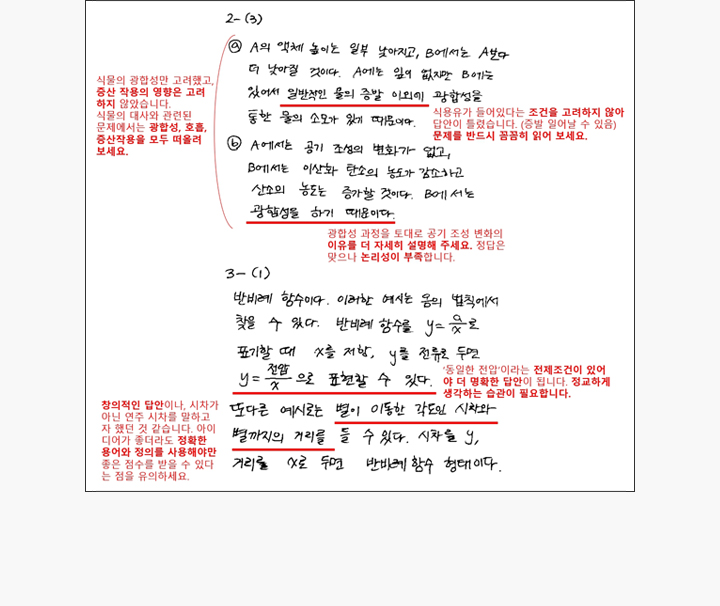 2-(3)
ⓐ A의 액체 높이는 일부 낮아지고, B에서는 A보다
더 낮아질 것이다. A에는 잎이 없지만 B에는
있어서 일반적인 물의 증발 이외에 광합성을
통한 물의 소모가 있기 때문이다.
식물의 광합성만 고려했고,
증산 작용의 영향은 고려
하지 않았습니다.
식물의 대사와 관련된
문제에서는 광합성, 호흡,
증산작용을 모두 떠올려
보세요.
식용유가 들어있다는 조건을 고려하지 않아
답안이 틀렸습니다. (증발 일어날 수 있음)
문제를 반드시 꼼꼼히 읽어 보세요.
ⓑ A에서는 공기 조성의 변화가 없고,
B에서는 이산화 탄소의 농도가 감소하고
산소의 농도는 증가할 것이다. B에서는
광합성을 하기 때문이다.
광합성 과정을 토대로 공기 조성 변화의
이유를 더 자세히 설명해 주세요. 정답은
맞으나 논리성이 부족합니다.
3-(1)
반비례 함수이다. 이러한 예시는 옴의 법칙에서
찾을 수 있다. 반비례 함수를 y=a/x로
표기할 때 x를 저항, y를 전류로 두면
y=전압/x 으로 표현할 수 있다.
'동일한 전압'이라는 전제조건이 있어
야 더 명확한 답안이 됩니다. 정교하게
생각하는 습관이 필요합니다.
또다른 예시로는 별이 이동한 각도인 시차와
별까지의 거리를 들 수 있다. 시차를 y,
거리를 x로 두면 반비례 함수 형태이다.
창의적인 답안이나, 시차가
아닌 연주 시차를 말하고
자 했던 것 같습니다. 아이
디어가 좋더라도 정확한
용어와 정의를 사용해야만
좋은 점수를 받을 수 있다
는 점을 유의하세요.